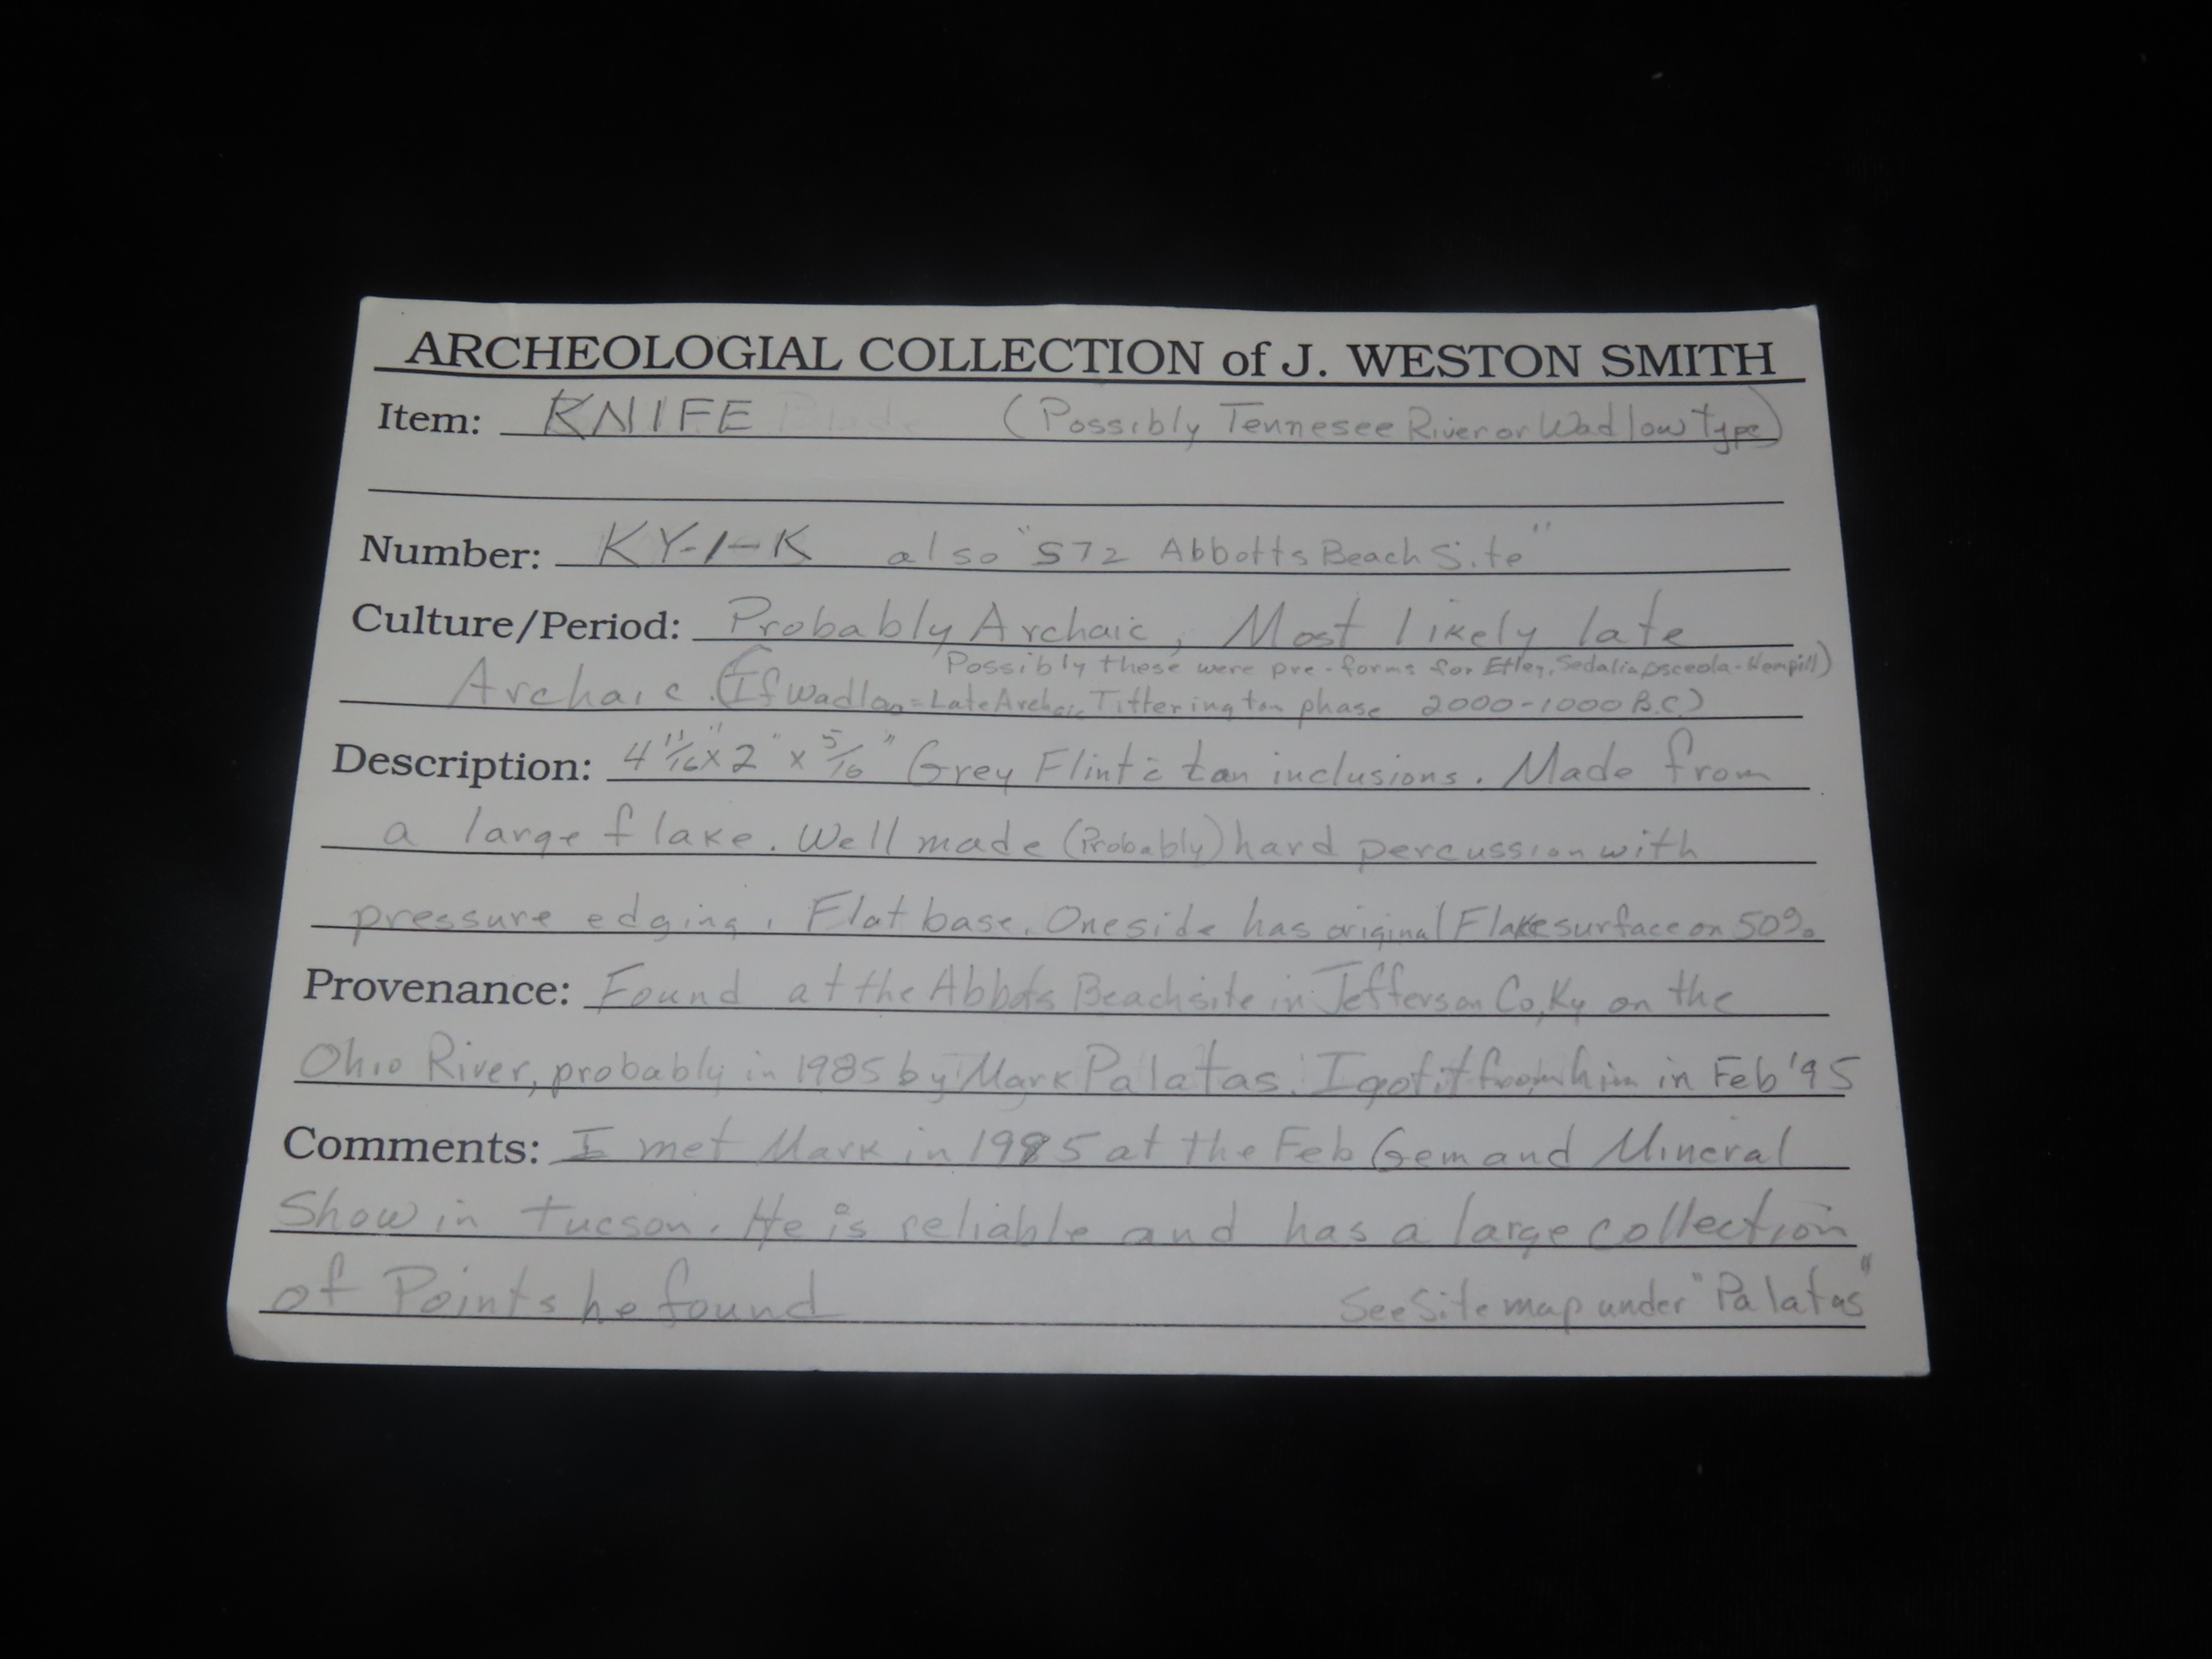 ARCHEOLOGIAL COLLECTION of J. WESTON SMITH
Item: KNIFE (Possibly Tennesee River or Wadlow type)
Number: KY-1-K also "S72 Abbotts Beach Site"
Culture/Period: Probably Archaic, Most likely late
Possibly these were pre-forms for Etley, Sedalia, Osceola-Hempill)
Archaic. (If Wadlow = Late Archaic, Titterington phase 2000-1000 B.C.)
Description: 4 11/16" x 2" x 5/16" Grey Flint c̄ tan inclusions. Made from
a large flake. Well made (Probably) hard percussion with
pressure edging. Flat base. One side has original Flake surface on 50%
Provenance: Found at the Abbots Beach site in Jefferson Co, Ky on the
Ohio River, probably in 1985 by Mark Palatas. I got it from him in Feb '95
Comments: I met Mark in 1985 at the Feb Gem and Mineral
Show in Tucson. He is reliable and has a large collection
of Points he found See Site map under "Palatas"